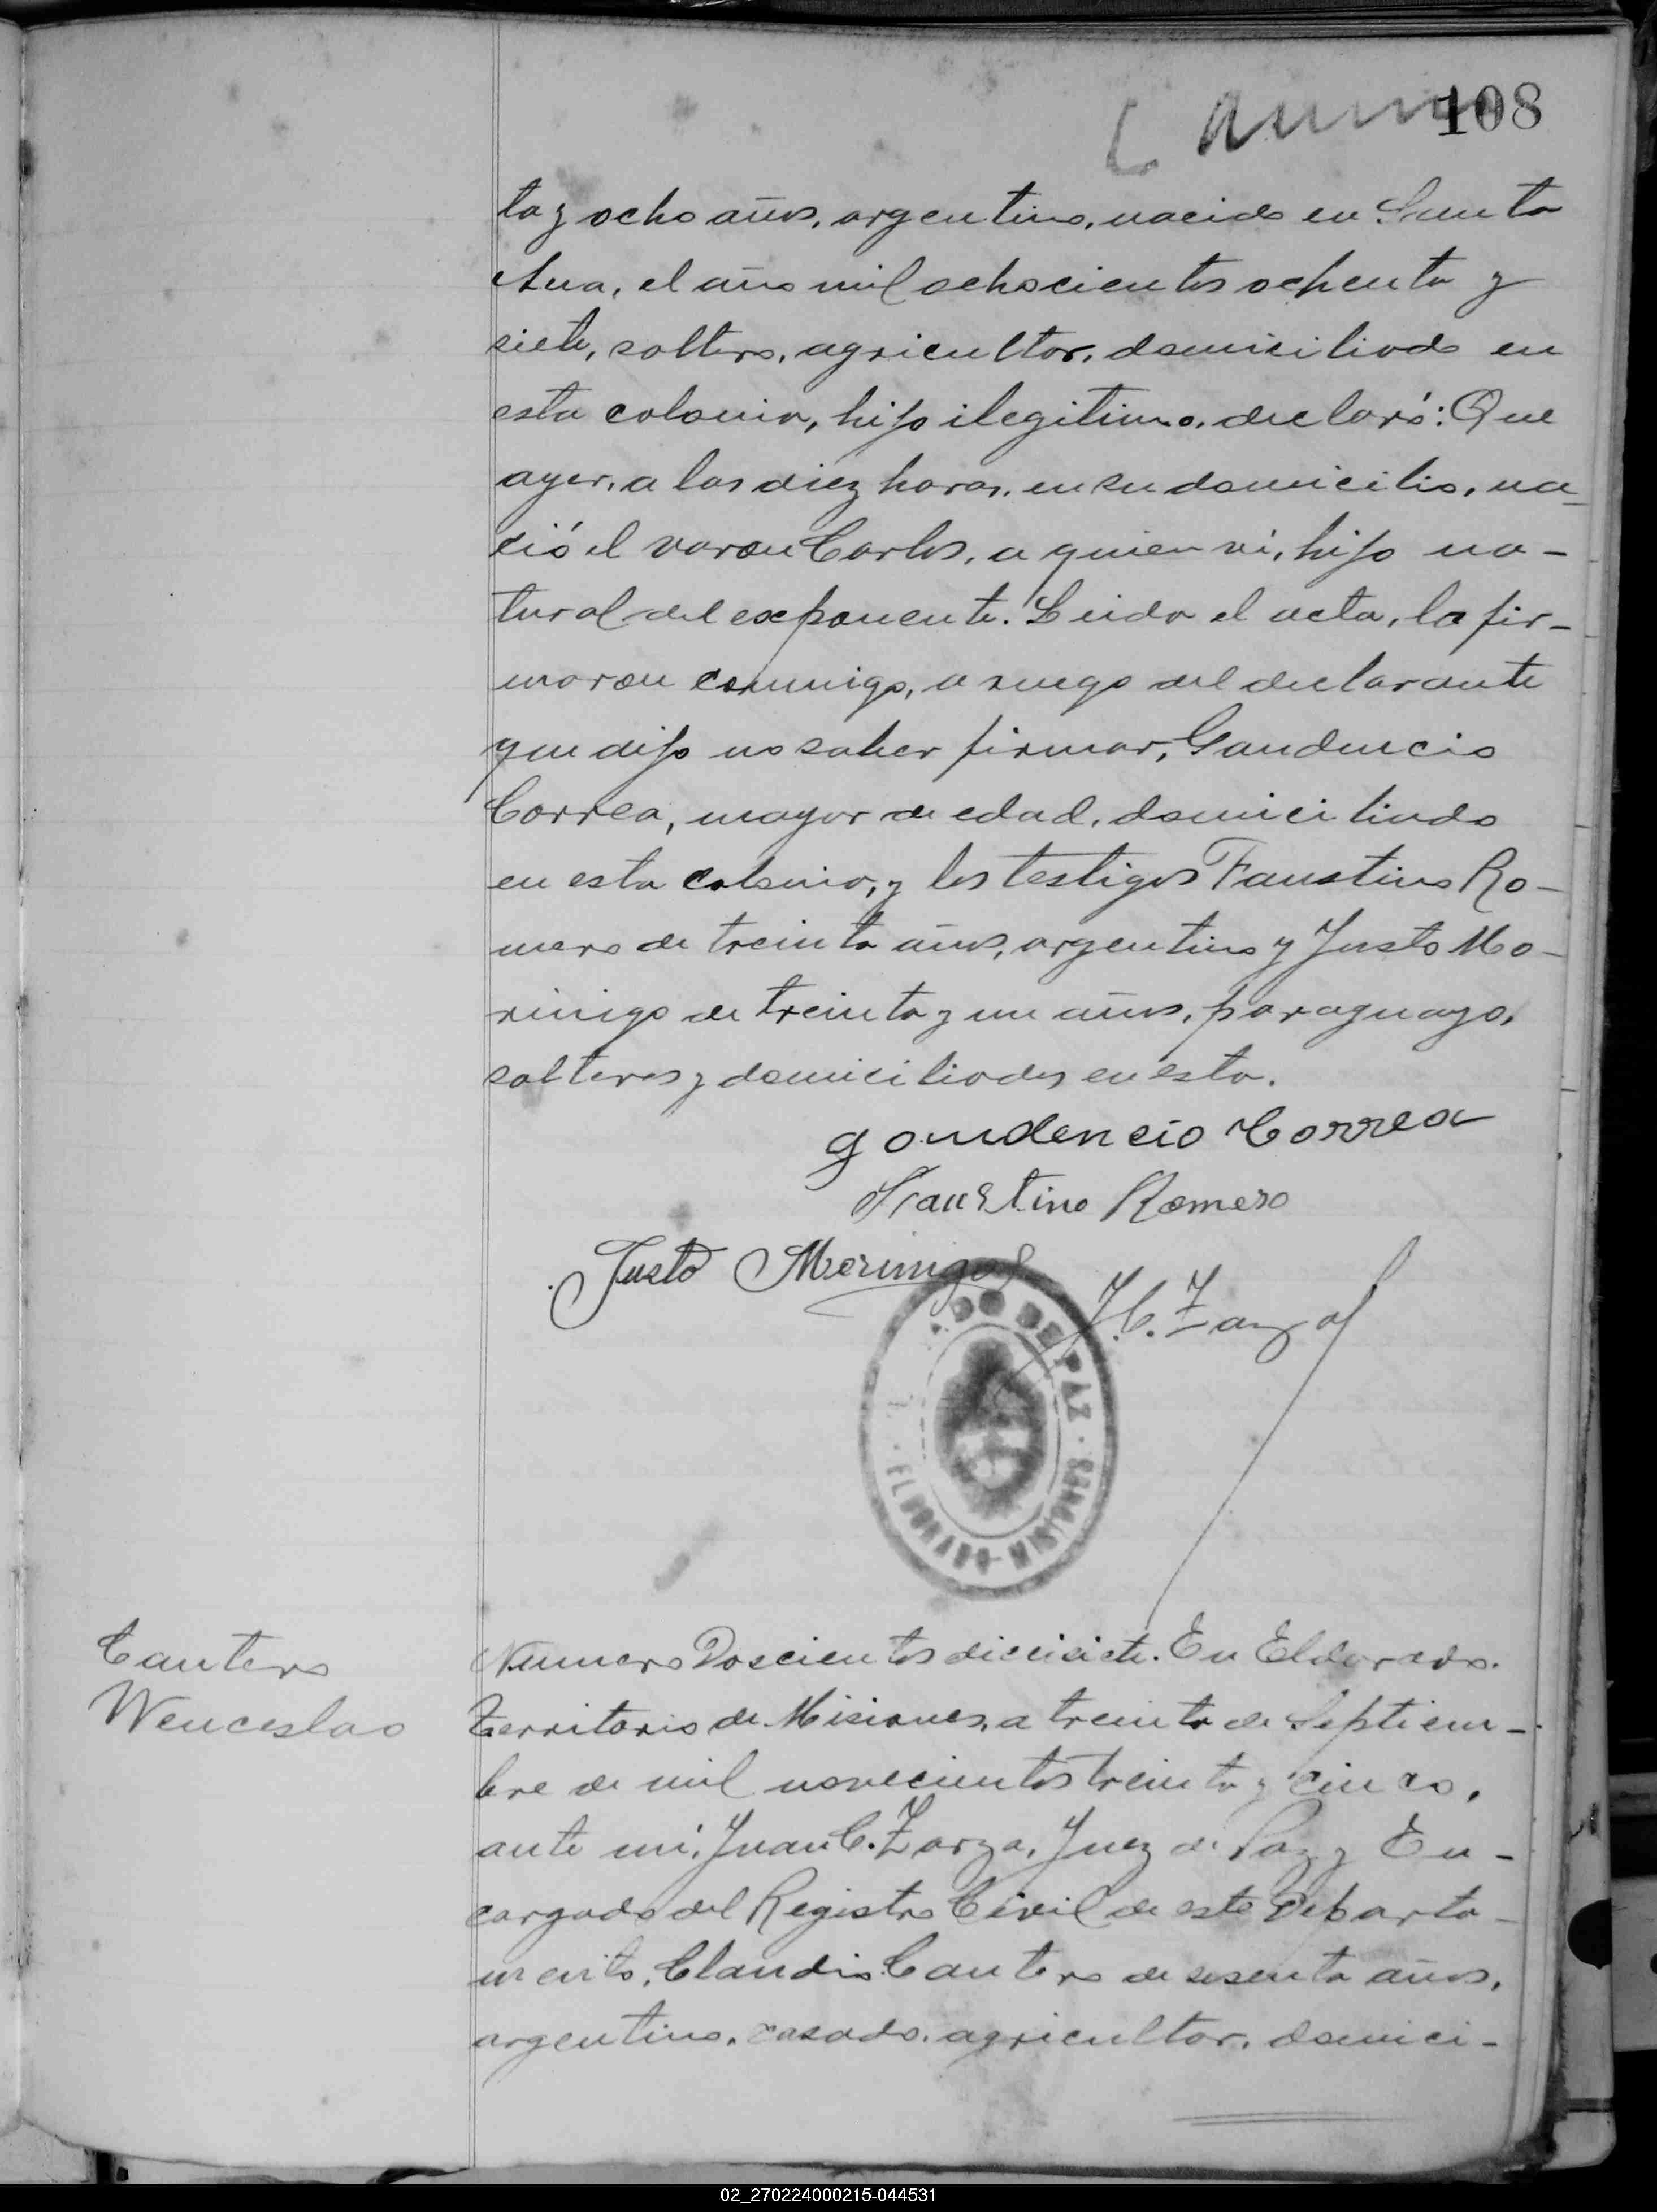 108
ta y ocho años, argentino, nacido en Santa
Ana, el año mil ochocientos ochenta y
siete, soltero, agricultor, domiciliado en
esta colonia, hijo ilegitimo, declaró: Que
ayer, a las diez horas, en su domicilio, na-
ció el varon Carlos, a quien vi, hijo na-
tural del exponente. Leida el acta, la fir-
maron conmigo, a ruego del declarante
que dijo no saber firmar, Gaudencio
Correa, mayor de edad, domiciliado
en esta colonia, y los testigos Faustino Ro-
mero de treinta años, argentino y Justo Mo-
rinigo de treinta y un años, paraguayo,
solteros y domiciliados en esta.
Gaudencio Correa
Faustino Romero
Justo Morinigo
J. C. Zarza
DO DE PAZ · ELDORADO - MISIONES ·
Cantero
Wenceslao
Numero Doscientos diecisiete. En Eldorado.
Territorio de Misiones, a treinta de Septiem-
bre de mil novecientos treinta y cinco,
ante mi, Juan C. Zarza, Juez de Paz y En-
cargado del Registro Civil de este Departa-
mento, Claudio Cantero de sesenta años,
argentino, casado, agricultor, domici-
02_270224000215-044531